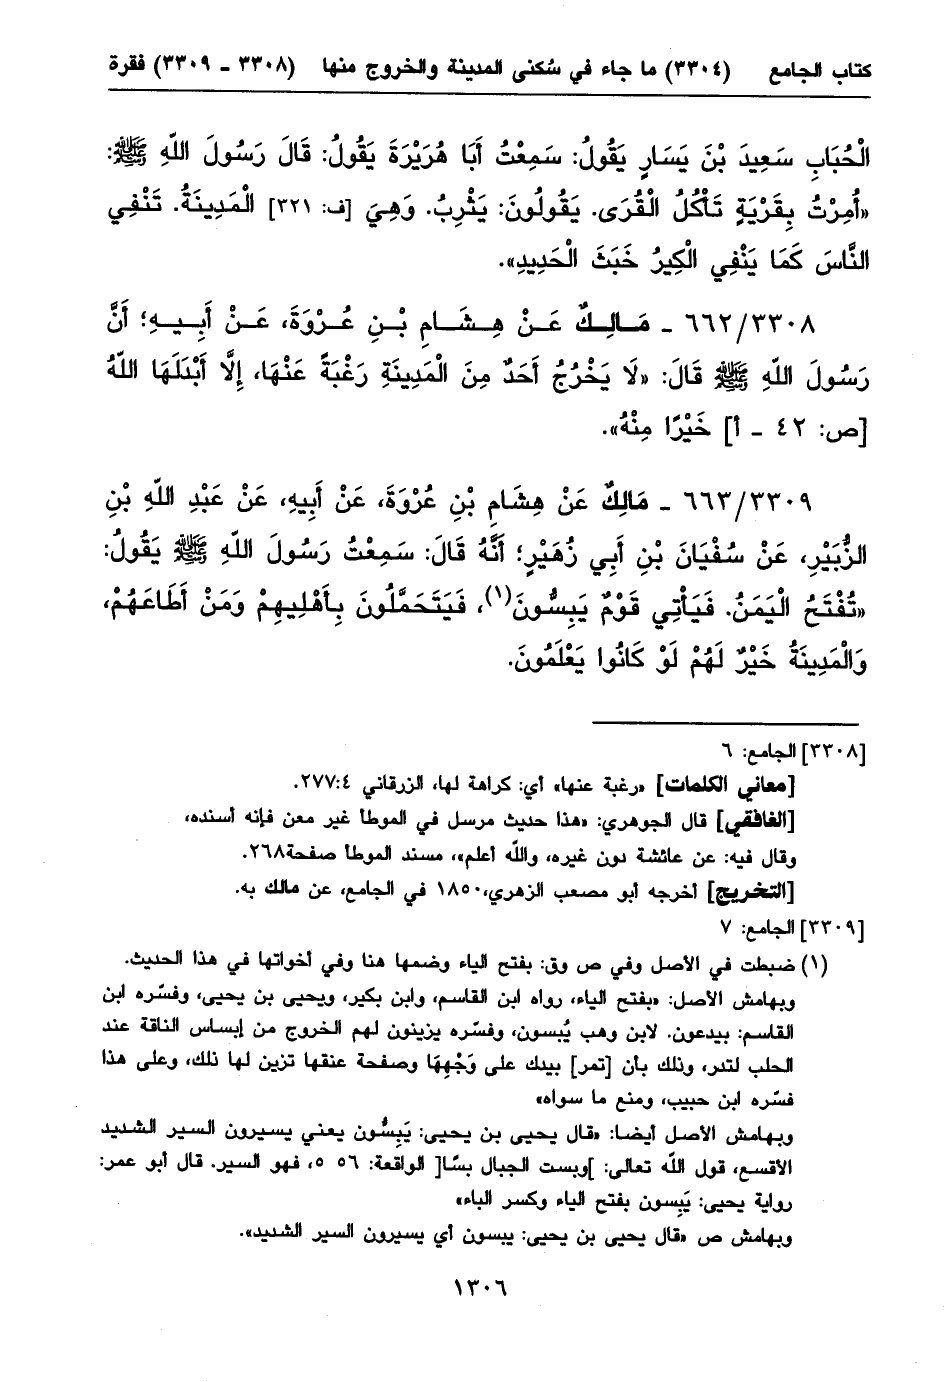 كتاب الجامع (٣٣٠٤) ما جاء في سُكنى المدينة والخروج منها (٣٣٠٨ ـ ٣٣٠٩) فقرة
الْحُبَابِ سَعِيدَ بْنَ يَسَارٍ يَقُولُ: سَمِعْتُ أَبَا هُرَيْرَةَ يَقُولُ: قَالَ رَسُولَ اللّهِ ﷺ:
«أُمِرْتُ بِقَرْيَةٍ تَأْكُلُ الْقُرَى. يَقُولُونَ: يَثْرِبُ. وَهِيَ [ف: ٣٢١] الْمَدِينَةُ. تَنْفِي
النَّاسَ كَمَا يَنْفِي الْكِيرُ خَبَثَ الْحَدِيدِ».
٦٦٢/٣٣٠٨ ـ مَالِكٌ عَنْ هِشَامِ بْنِ عُرْوَةَ، عَنْ أَبِيهِ؛ أَنَّ
رَسُولَ اللّهِ ﷺ قَالَ: «لَا يَخْرُجُ أَحَدٌ مِنَ الْمَدِينَةِ رَغْبَةً عَنْهَا، إِلَّا أَبْدَلَهَا اللّهُ
[ص: ٤٢ ـ أ] خَيْرًا مِنْهُ».
٦٦٣/٣٣٠٩ ـ مَالِكٌ عَنْ هِشَامِ بْنِ عُرْوَةَ، عَنْ أَبِيهِ، عَنْ عَبْدِ اللّهِ بْنِ
الزُّبَيْرِ، عَنْ سُفْيَانَ بْنِ أَبِي زُهَيْرٍ؛ أَنَّهُ قَالَ: سَمِعْتُ رَسُولَ اللّهِ ﷺ يَقُولُ:
«تُفْتَحُ الْيَمَنُ. فَيَأْتِي قَوْمٌ يَبِسُّونَ(١)، فَيَتَحَمَّلُونَ بِأَهْلِيهِمْ وَمَنْ أَطَاعَهُمْ،
وَالْمَدِينَةُ خَيْرٌ لَهُمْ لَوْ كَانُوا يَعْلَمُونَ.
[٣٣٠٨] الجامع: ٦
[معاني الكلمات] «رغبة عنها» أي: كراهة لها، الزرقاني ٢٧٧:٤.
[الغافقي] قال الجوهري: «هذا حديث مرسل في الموطأ غير معن فإنه أسنده،
وقال فيه: عن عائشة دون غيره، واللّه أعلم»، مسند الموطأ صفحة٢٦٨.
[التخريج] أخرجه أبو مصعب الزهري،١٨٥٠ في الجامع، عن مالك به.
[٣٣٠٩] الجامع: ٧
(١) ضبطت في الأصل وفي ص وق: بفتح الياء وضمها هنا وفي أخواتها في هذا الحديث.
وبهامش الأصل: «بفتح الياء، رواه ابن القاسم، وابن بكير، ويحيى بن يحيى، وفسّره ابن
القاسم: بيدعون. لابن وهب يُبسون، وفسّره يزينون لهم الخروج من إبساس الناقة عند
الحلب لتدر، وذلك بأن [تمر] بيدك على وَجْهِهَا وصفحة عنقها تزين لها ذلك، وعلى هذا
فسّره ابن حبيب، ومنع ما سواه»
وبهامش الأصل أيضا: «قال يحيى بن يحيى: يَبِسُّون يعني يسيرون السير الشديد
الأقسع، قول اللّه تعالى: ]وبست الجبال بسًا[ الواقعة: ٥٦ ٥، فهو السير. قال أبو عمر:
رواية يحيى: يَبِسون بفتح الياء وكسر الباء»
وبهامش ص «قال يحيى بن يحيى: يبسون أي يسيرون السير الشديد».
١٣٠٦